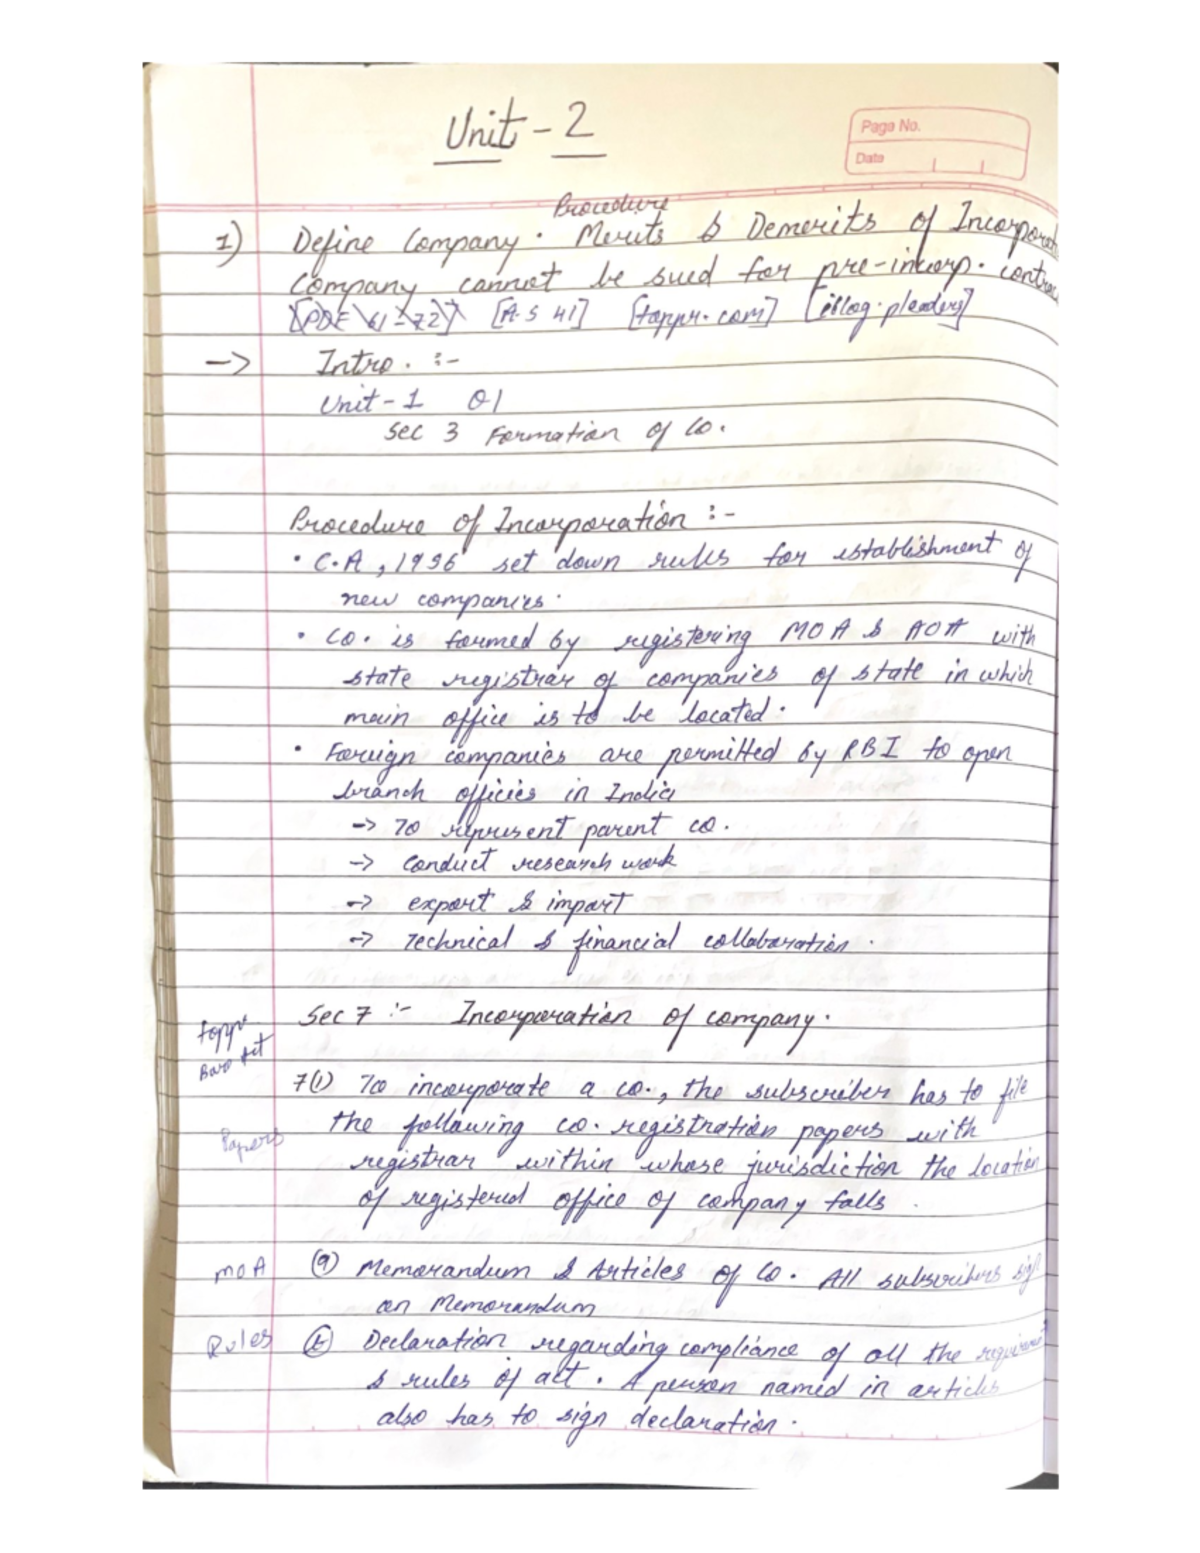 Unit - 2
Page No.
Date
Procedure
1) Define Company. Merits & Demerits of Incorporat
Company cannot be sued for pre-incorp. contrac
[PDF 61-72] [A.S 41] [toppr.com] [blog.pleaders]
-> Intro. :-
Unit - 1 Q1
Sec 3 Formation of Co.
Procedure of Incorporation :-
• C.A, 1956 set down rules for establishment of
new companies.
• Co. is formed by registering MOA & AOA with
state registrar of companies of state in which
main office is to be located.
• Foreign companies are permitted by RBI to open
branch officies in India
-> To represent parent co.
-> conduct research work
-> export & import
-> Technical & financial collaboration.
Sec 7 :- Incorporation of company.
toppr
Bare Act
7(1) To incorporate a co., the subscriber has to file
the following co. registration papers with
Papers
registrar within whose jurisdiction the location
of registered office of company falls.
MOA (a) Memorandum & Articles of Co. All subscribers sign
on Memorandum
Rules (b) Declaration regarding compliance of all the requirement
& rules of act. A person named in articles
also has to sign declaration.